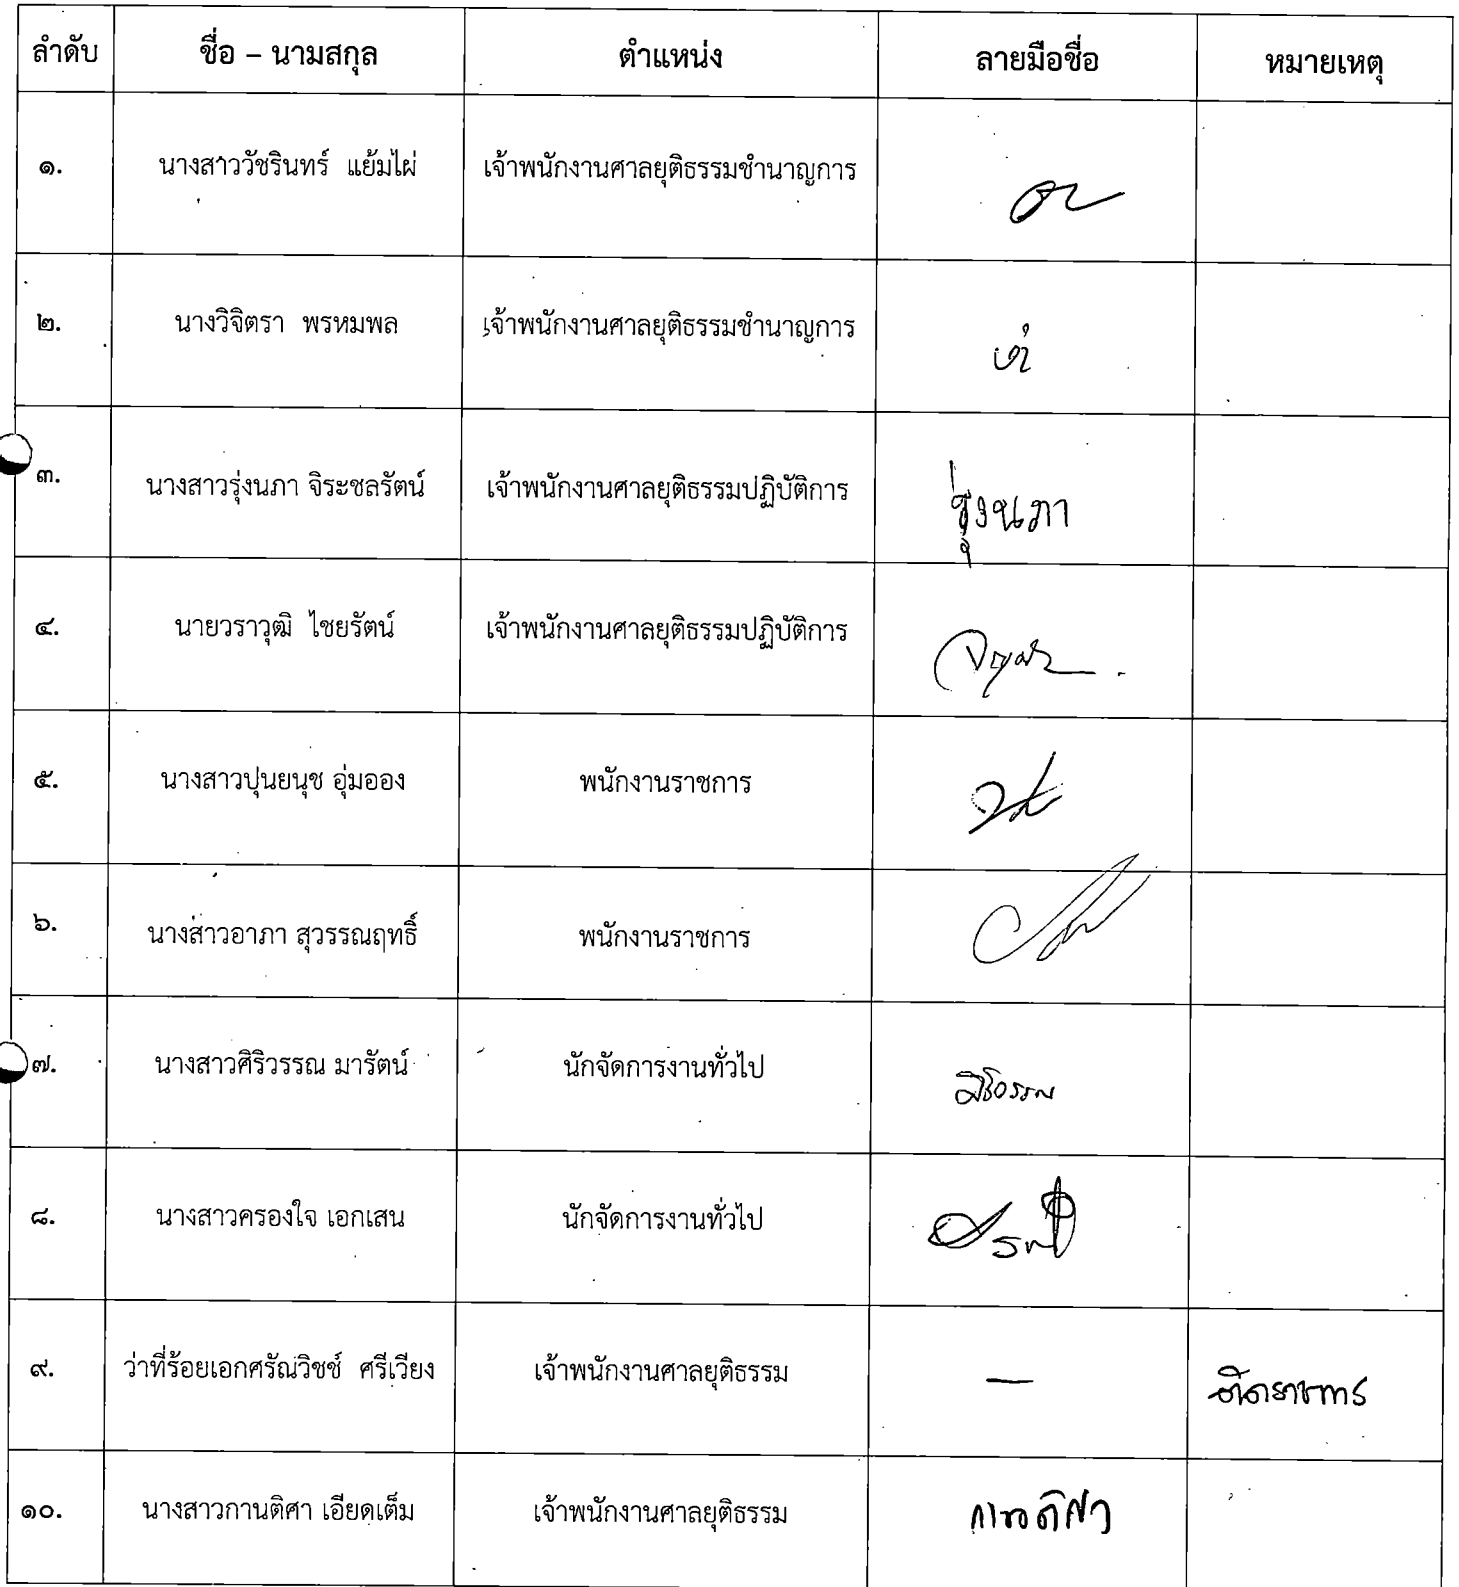 ลำดับ ชื่อ – นามสกุล ตำแหน่ง ลายมือชื่อ หมายเหตุ
๑. นางสาววัชรินทร์ แย้มไผ่ เจ้าพนักงานศาลยุติธรรมชำนาญการ
๒. นางวิจิตรา พรหมพล เจ้าพนักงานศาลยุติธรรมชำนาญการ
๓. นางสาวรุ่งนภา จิระชลรัตน์ เจ้าพนักงานศาลยุติธรรมปฏิบัติการ รุ่งนภา
๔. นายวราวุฒิ ไชยรัตน์ เจ้าพนักงานศาลยุติธรรมปฏิบัติการ
๕. นางสาวปุนยนุช อุ่มออง พนักงานราชการ
๖. นางสาวอาภา สุวรรณฤทธิ์ พนักงานราชการ
๗. นางสาวศิริวรรณ มารัตน์ นักจัดการงานทั่วไป ศิริวรรณ
๘. นางสาวครองใจ เอกเสน นักจัดการงานทั่วไป
๙. ว่าที่ร้อยเอกศรัณวิชช์ ศรีเวียง เจ้าพนักงานศาลยุติธรรม – ติดราชการ
๑๐. นางสาวกานติศา เอียดเต็ม เจ้าพนักงานศาลยุติธรรม กานติศา